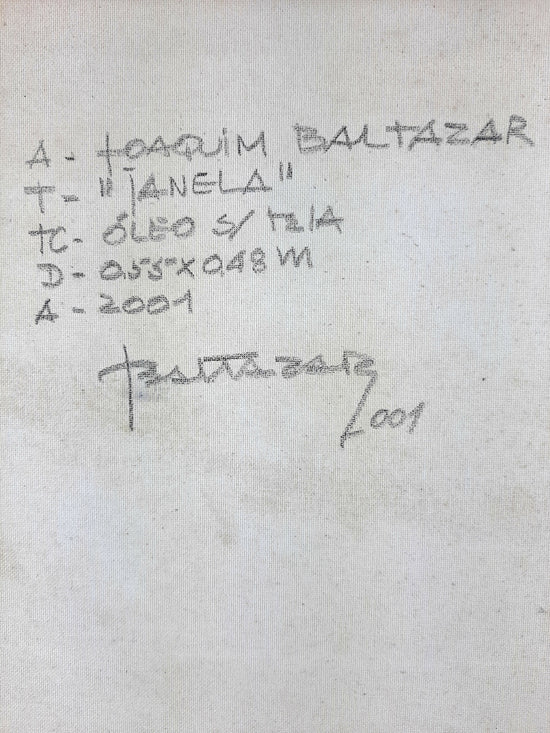 A - JOAQUIM BALTAZAR
T - "JANELA"
TC - ÓLEO S/ TELA
D - 0,55 X 0,48 M
A - 2001
JBALTAZAR
2001